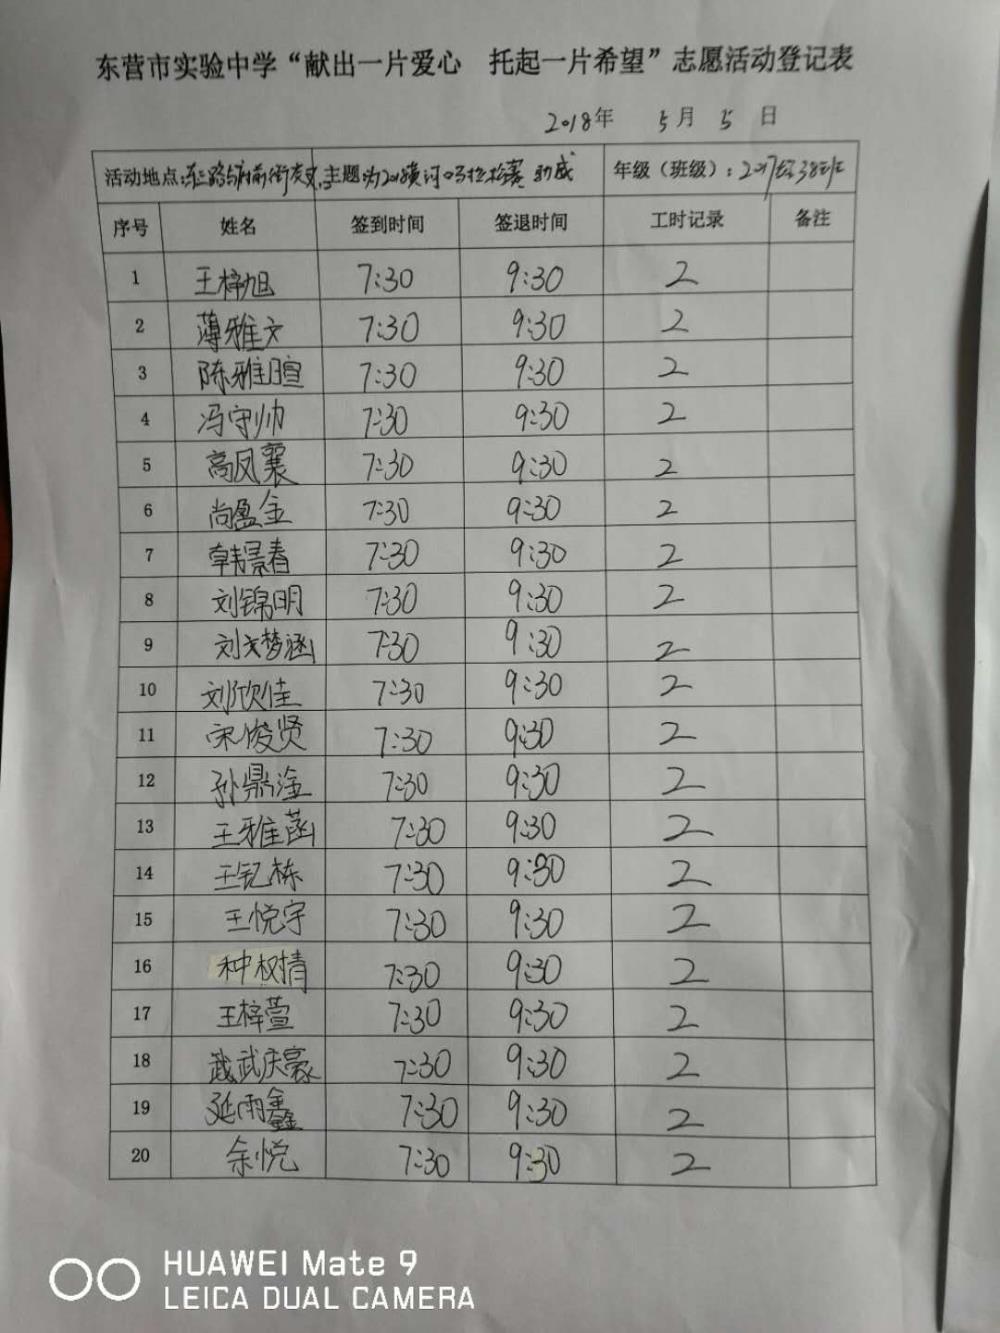 东营市实验中学“献出一片爱心 托起一片希望”志愿活动登记表
2018年 5月 5日
活动地点:东三路与府前街交叉,主题为2018黄河口马拉松赛助威 年级(班级):2017级38班
序号 姓名 签到时间 签退时间 工时记录 备注
1 王梓旭 7:30 9:30 2
2 薄雅文 7:30 9:30 2
3 陈雅暄 7:30 9:30 2
4 冯守帅 7:30 9:30 2
5 高凤襄 7:30 9:30 2
6 尚盈金 7:30 9:30 2
7 韩景春 7:30 9:30 2
8 刘锦明 7:30 9:30 2
9 刘戈梦涵 7:30 9:30 2
10 刘欣佳 7:30 9:30 2
11 宋俊贤 7:30 9:30 2
12 孙鼎淦 7:30 9:30 2
13 王雅菡 7:30 9:30 2
14 王钇栋 7:30 9:30 2
15 王悦宇 7:30 9:30 2
16 种权倩 7:30 9:30 2
17 王梓萱 7:30 9:30 2
18 武庆豪 7:30 9:30 2
19 延雨鑫 7:30 9:30 2
20 余悦 7:30 9:30 2
HUAWEI Mate 9
LEICA DUAL CAMERA